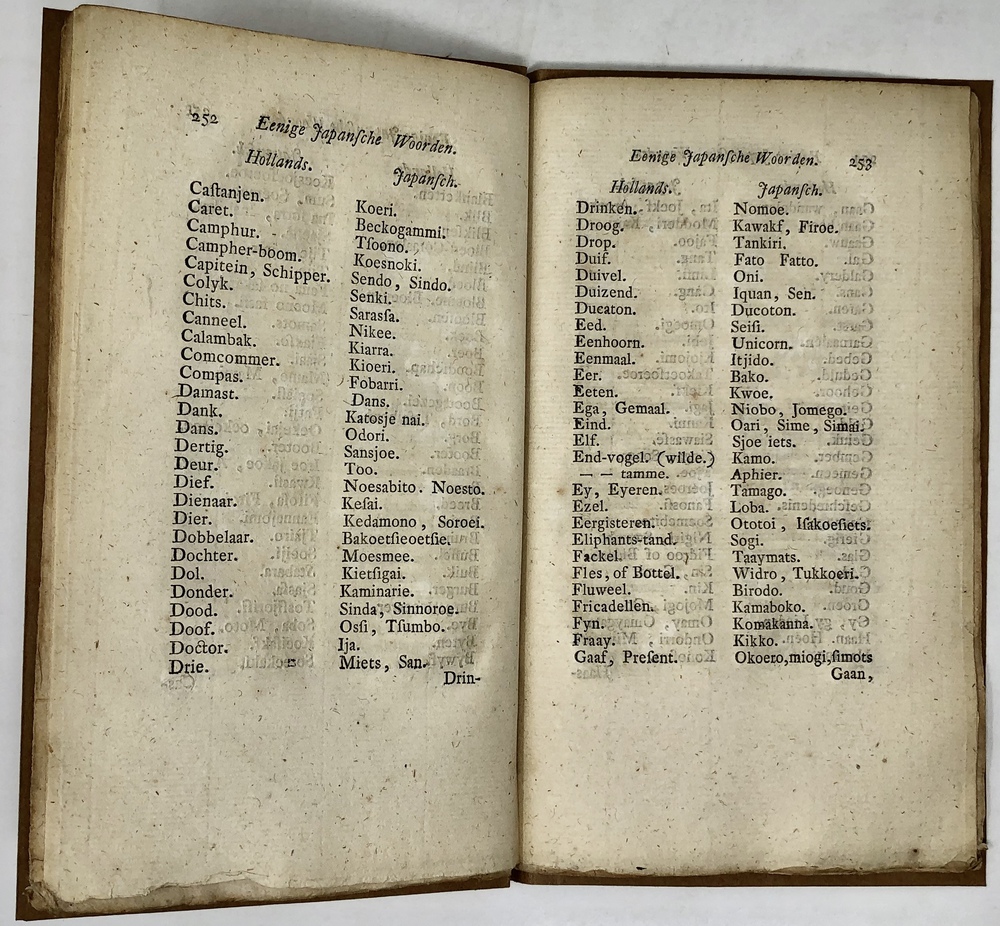 252
Eenige Japanſche Woorden.
Hollands. Japanſch.
Caſtanjen. Koeri.
Caret. Beckogammi.
Camphur. Tſoono.
Campher-boom. Koesnoki.
Capitein, Schipper. Sendo, Sindo.
Colyk. Senki.
Chits. Sarasſa.
Canneel. Nikee.
Calambak. Kiarra.
Comcommer. Kioeri.
Compas. Fobarri.
Damast. Dans.
Dank. Katosje nai.
Dans. Odori.
Dertig. Sansjoe.
Deur. Too.
Dief. Noesabito. Noesto.
Dienaar. Keſai.
Dier. Kedamono, Soroei.
Dobbelaar. Bakoetſieoetſie.
Dochter. Moesmee.
Dol. Kietſigai.
Donder. Kaminarie.
Dood. Sinda, Sinnoroe.
Doof. Osſi, Tſumbo.
Doctor. Ija.
Drie. Miets, San.
Drin-
Eenige Japanſche Woorden. 253
Hollands. Japanſch.
Drinken. Nomoe.
Droog. Kawakf, Firoe.
Drop. Tankiri.
Duif. Fato Fatto.
Duivel. Oni.
Duizend. Iquan, Sen.
Ducaton. Ducoton.
Eed. Seiſi.
Eenhoorn. Unicorn.
Eenmaal. Itjido.
Eer. Bako.
Eeten. Kwoe.
Ega, Gemaal. Niobo, Jomego.
Eind. Oari, Sime, Simai.
Elf. Sjoe iets.
End-vogel. (wilde.) Kamo.
— — tamme. Aphier.
Ey, Eyeren. Tamago.
Ezel. Loba.
Eergisteren. Ototoi, Iſakoeſiets.
Eliphants-tand. Sogi.
Fackel. Taaymats.
Fles, of Bottel. Widro, Tukkoeri.
Fluweel. Birodo.
Fricadellen. Kamaboko.
Fyn. Komakanna.
Fraay. Kikko.
Gaaf, Preſent. Okoero, miogi, ſimots
Gaan,